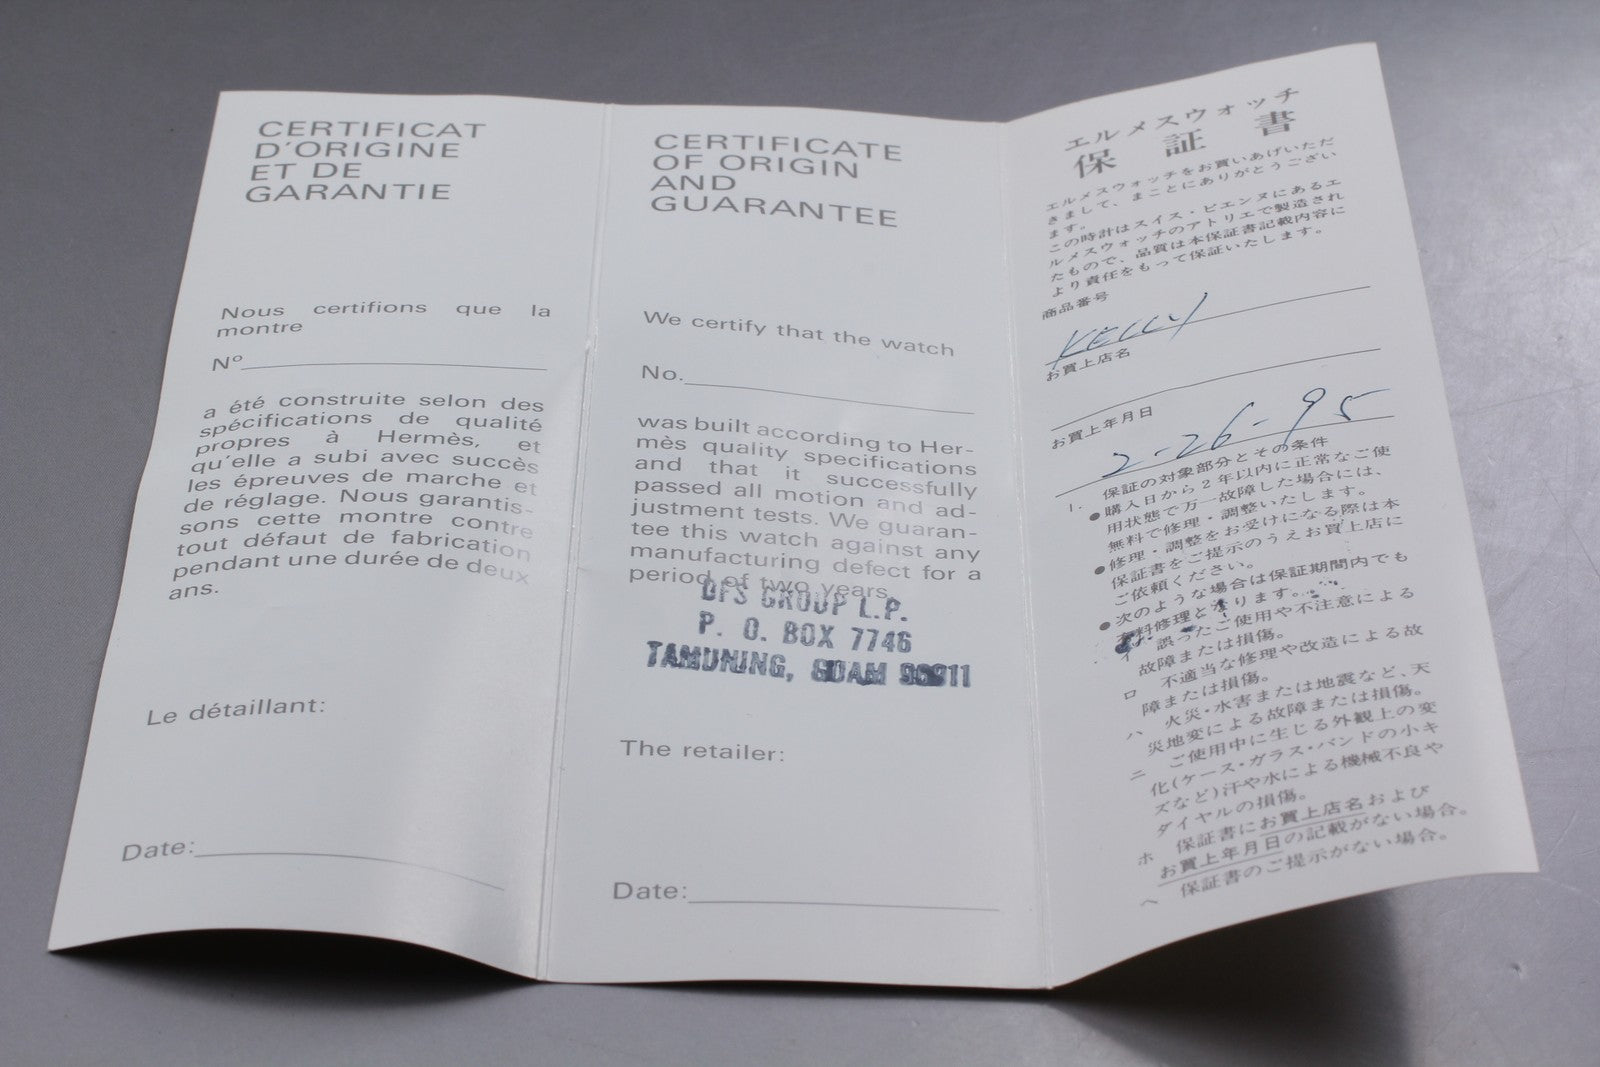 CERTIFICAT
D'ORIGINE
ET DE
GARANTIE
Nous certifions que la
montre
Nº
a été construite selon des
spécifications de qualité
propres à Hermès, et
qu'elle a subi avec succès
les épreuves de marche et
de réglage. Nous garantis-
sons cette montre contre
tout défaut de fabrication
pendant une durée de deux
ans.
Le détaillant:
Date:
CERTIFICATE
OF ORIGIN
AND
GUARANTEE
We certify that the watch
No.
was built according to Her-
mès quality specifications
and that it successfully
passed all motion and ad-
justment tests. We guaran-
tee this watch against any
manufacturing defect for a
period of two years.
DFS GROUP L.P.
P. O. BOX 7746
TAMUNING, GUAM 96911
The retailer:
Date:
エルメスウォッチ
保証書
エルメスウォッチをお買いあげいただ
きまして、まことにありがとうござい
ます。
この時計はスイス・ビエンヌにあるエ
ルメスウォッチのアトリエで製造され
たもので、品質は本保証書記載内容に
より責任をもって保証いたします。
商品番号
KELLY
お買上店名
お買上年月日
2-26-95
1. 保証の対象部分とその条件
●購入日から2年以内に正常なご使
用状態で万一故障した場合には、
無料で修理・調整いたします。
●修理・調整をお受けになる際は本
保証書をご提示のうえお買上店に
ご依頼ください。
●次のような場合は保証期間内でも
有料修理となります。
イ 誤ったご使用や不注意による
故障または損傷。
ロ 不適当な修理や改造による故
障または損傷。
ハ 火災・水害または地震など、天
災地変による故障または損傷。
ニ ご使用中に生じる外観上の変
化(ケース・ガラス・バンドの小キ
ズなど)汗や水による機械不良や
ダイヤルの損傷。
ホ 保証書にお買上店名および
お買上年月日の記載がない場合。
ヘ 保証書のご提示がない場合。